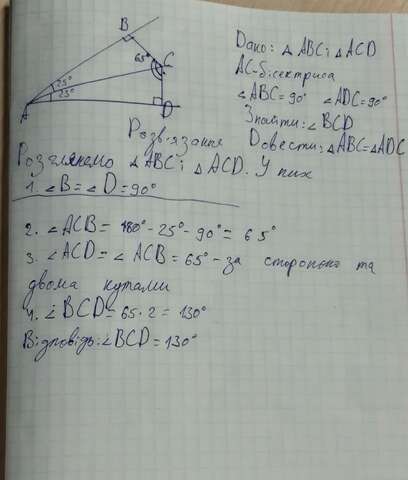 B
65°
C
25°
25°
A
D
Дано: △ ABC і △ ACD
AC-бісектриса
∠ABC=90° ∠ADC=90°
Знайти: ∠BCD
Довести: △ABC=△ADC
Розв'язання
Розглянемо △ABC і △ACD. У них
1. ∠B=∠D=90°
2. ∠ACB= 180°-25°-90°= 65°
3. ∠ACD= ∠ACB= 65° - за стороною та
двома кутами
4. ∠BCD=65·2=130°
Відповідь: ∠BCD=130°